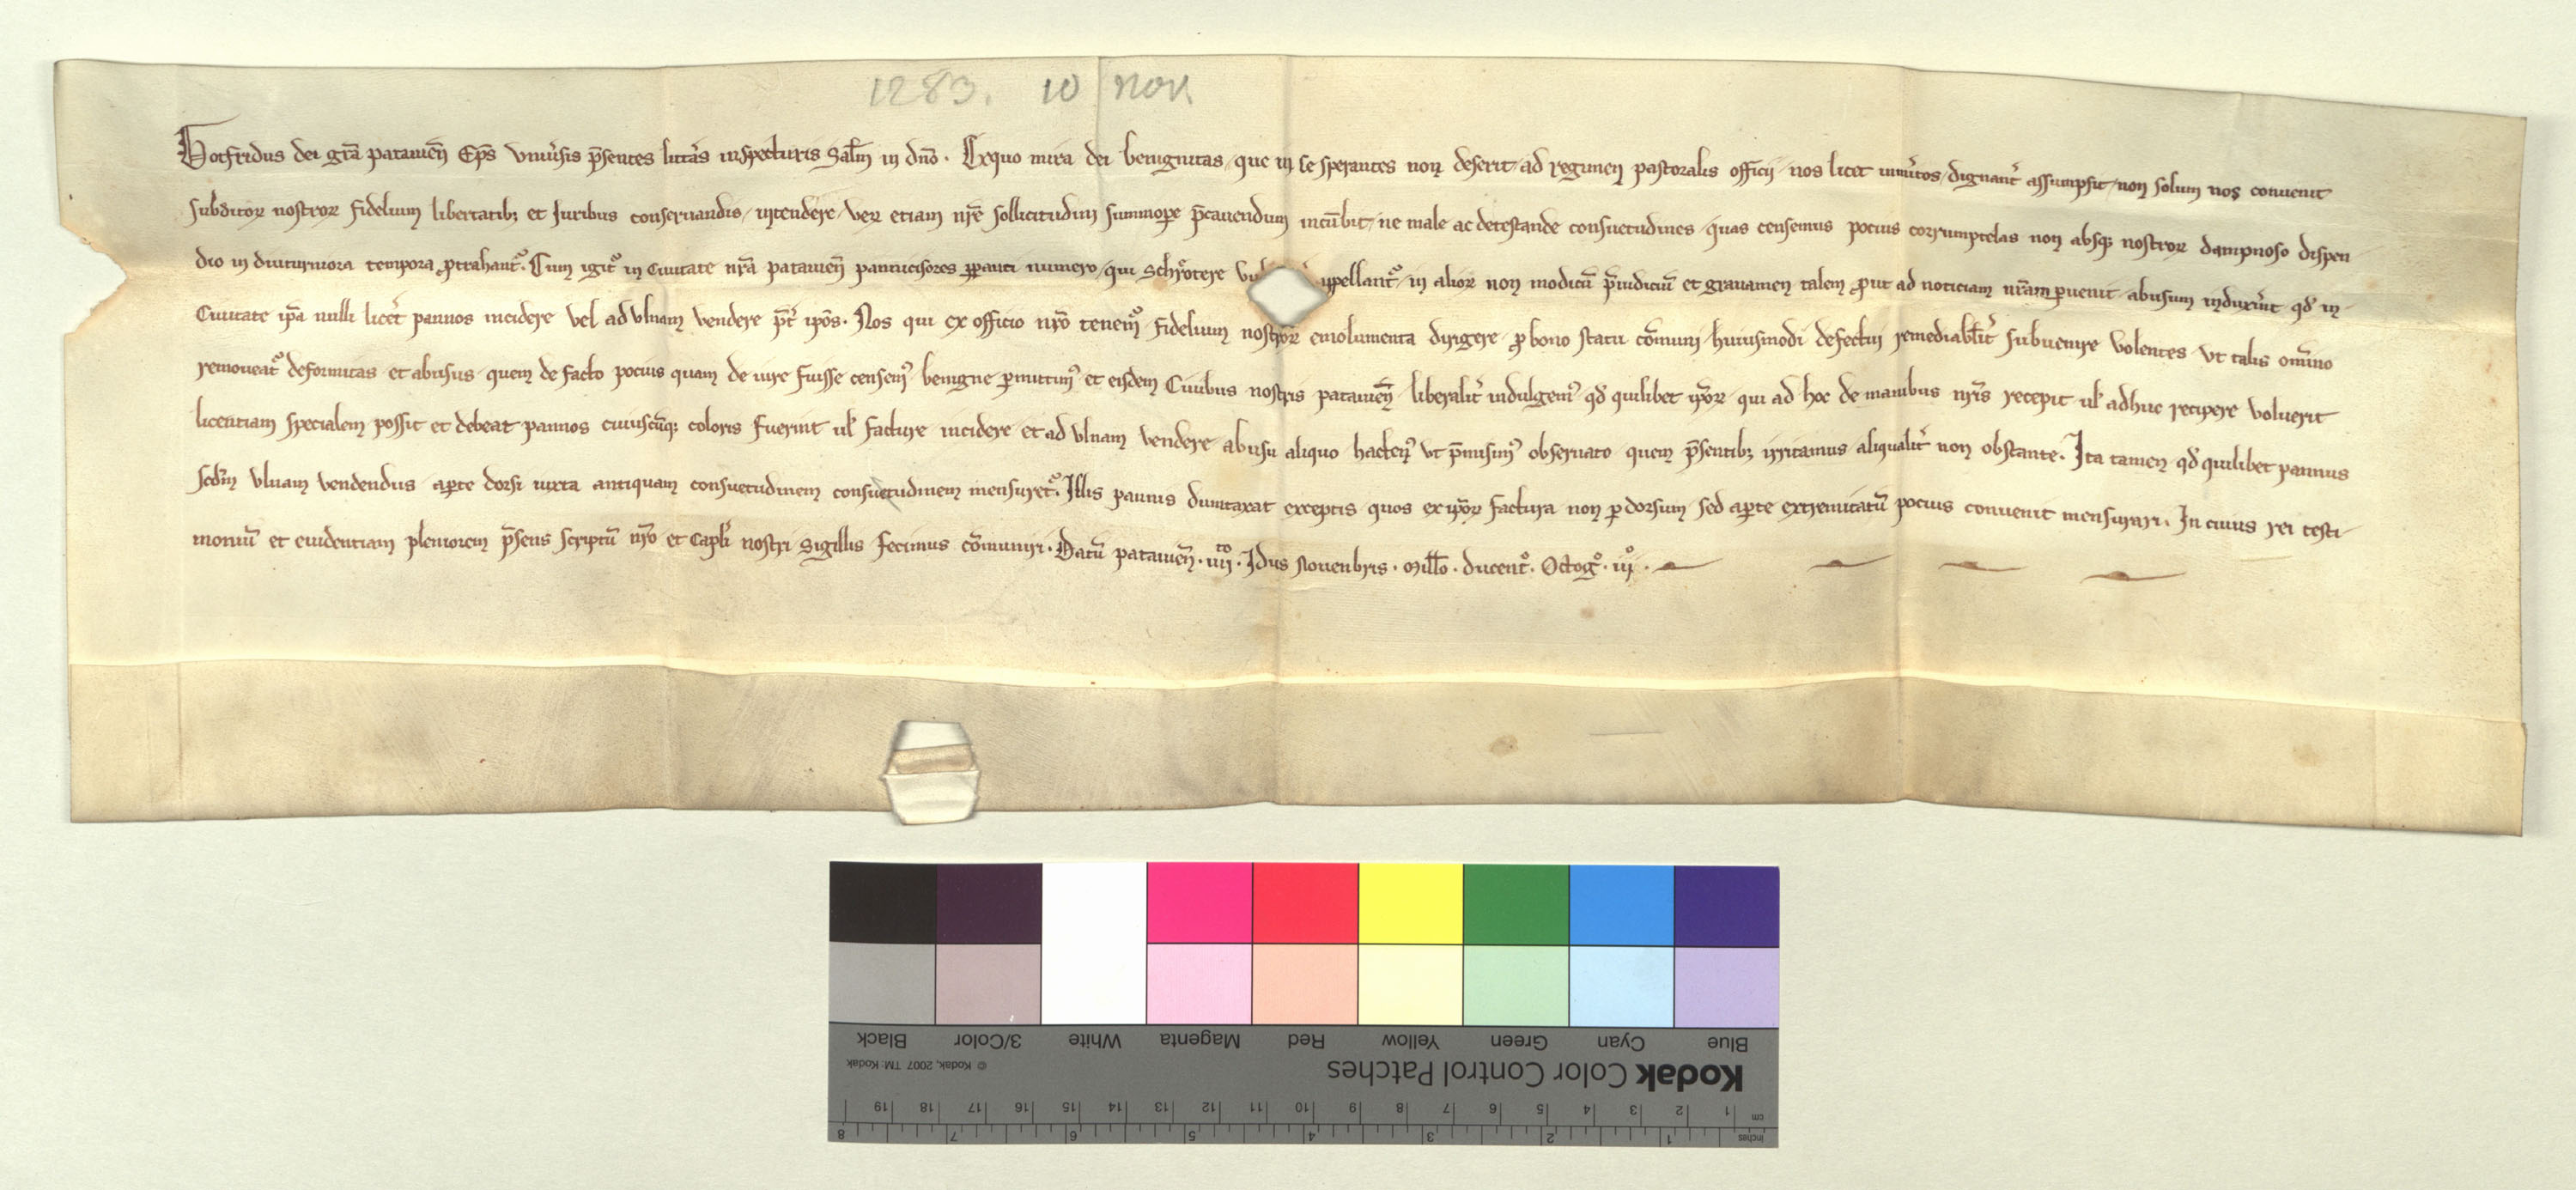 1283. 10 Nov
Gotfridus dei gr̄a patauien̄ Ep̄s vniu̓sis p̄sentes litt̓as inspecturis Sal̄m in dn̄o. Exquo mira dei benignitas, que in se sperantes non deserit, ad regimen pastoralis officij, nos licet inmeritos, dignant̓ assumpsit, non solum nos conuenit
subditoꝝ nostroꝝ fidelium libertatibꝫ et Iuribus conseruandis, intendere, veꝝ etiam nr̄e sollicitudini summoꝑe p̄cauendum incūbit, ne male ac detestande consuetudines, quas censemus pocius corrumptelas non absqꝫ nostroꝝ dampnoso dispen
dio in diuturniora tempora ꝓtrahant᷑. Cum igit᷑ in Ciuitate nr̄a patauien̄ pannicisores ꝑpauci numero, qui Schroͤtere vul appellant᷑, in alioꝝ non modicū p̄iudiciū et grauamen talem ꝓut ad noticiam nr̄am ꝑuenit, abusum induxer̓t qd̓ in
Ciuitate ip̄a nulli licer̓et pannos incidere vel ad vlnam vendere p̄t̓ ip̄os. Nos qui ex officio nr̄o tenemꝰ fidelium nostroꝝ emolumenta dirigere, ꝓ bono statu cōmuni, huiusmodi defectui remediabilit̓ subuenire volentes, vt talis om̄ino
remoueat᷑ deformitas et abusus, quem de facto pocius quam de iure fuisse censemꝰ, benigne ꝑmittimꝰ et eisdem Ciuibus nostris patauien̄, liberalit̓ indulgemꝰ qd̓ quilibet ip̄oꝝ, qui ad hoc de manibus nr̄is recepit ul̓ adhuc recipere voluerit
licentiam specialem possit et debeat pannos cuiuscūqꝫ coloris fuerint ul̓ facture incidere et ad vlnam vendere abusu aliquo hactenꝰ vt p̄misimꝰ obseruato quem p̄sentibꝫ irritamus aliqualit̓ non obstante. Ita tamen qd̓ quilibet pannus
scd̓m vlnam vendendus aꝑte dorsi iuxta antiquam consuetudinem consuetudinem mensuret᷑. Illis pannis dumtaxat exceptis quos ex ip̄oꝝ factura non ꝑ dorsum, sed aꝑte extremitatū pocius conuenit mensurari. In cuius rei testi-
moniū et euidentiam pleniorem p̄sens scriptū nr̄o et Capl̓i nostri Sigillis fecimus cōmuniri. Datū patauien̄. iiijto. Idus Nouenbris. Mill̄o. ducent᷑o. Octog̓o. iijo.
Blue Cyan Green Yellow Red Magenta White 3/Color Black
Kodak Color Control Patches
© Kodak, 2007 TM: Kodak
cm 1 2 3 4 5 6 7 8 9 10 11 12 13 14 15 16 17 18 19
inches 1 2 3 4 5 6 7 8